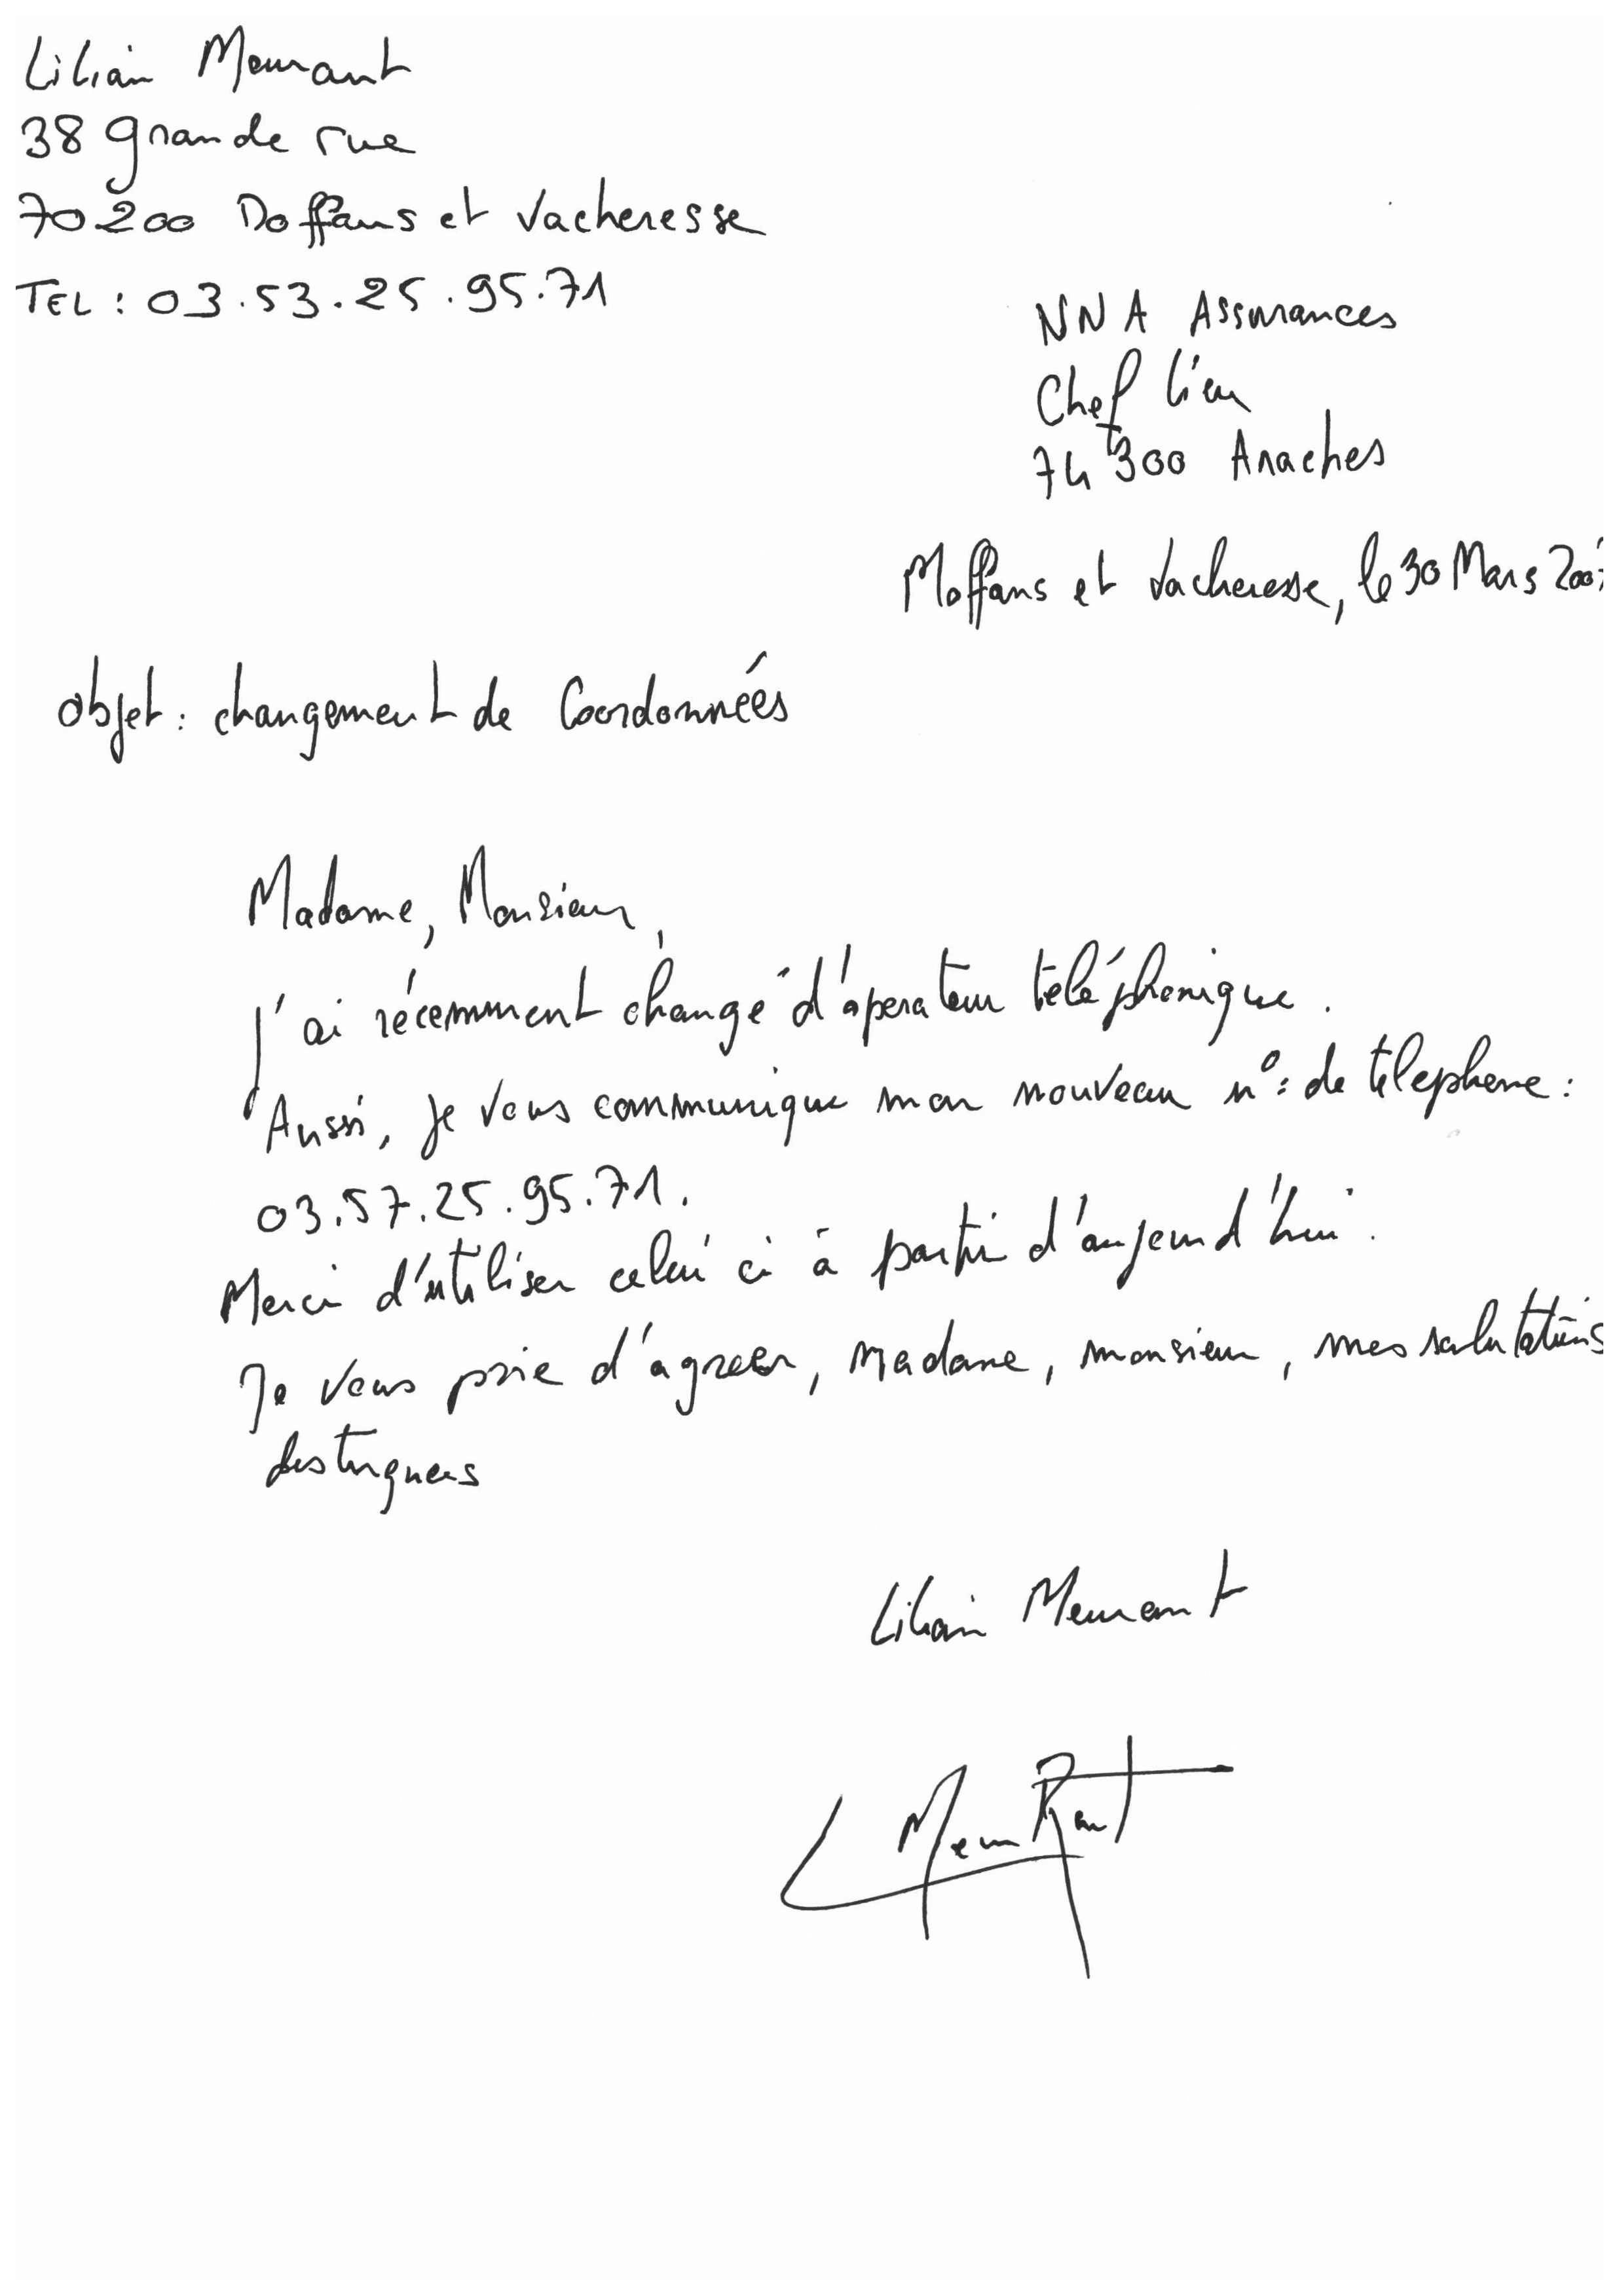 Lilian Meurant
38 grande rue
70200 Doffans et Vacheresse
TEL : 03.53.25.95.71
NNA Assurances
Chef lieu
74300 Araches
Moffans et Vacheresse, le 30 Mars
objet : changement de Coordonnées
Madame, Monsieur,
J'ai récemment changé d'operateur téléphonique.
Aussi, je vous communique mon nouveau n°: de télephone :
03.57.25.95.71.
Merci d'utiliser celui ci à partir d'aujourd'hui.
Je vous prie d'agreer, Madame, monsieur, mes salutations
distinguees
Lilian Meurant
L MeuRant